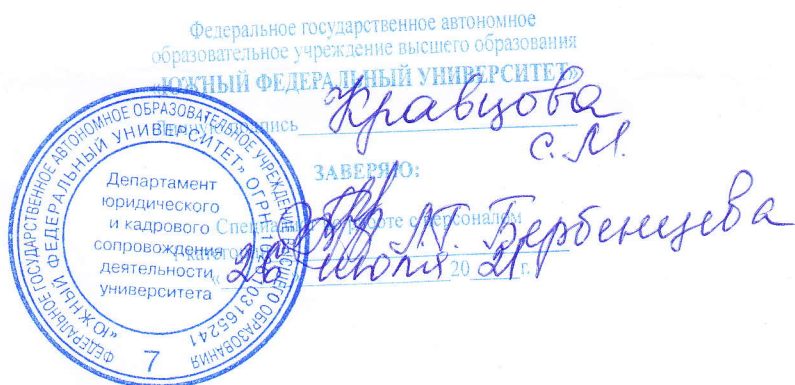 Федеральное государственное автономное
образовательное учреждение высшего образования
«ЮЖНЫЙ ФЕДЕРАЛЬНЫЙ УНИВЕРСИТЕТ»
подпись Кравцова
С.М.
ЗАВЕРЯЮ:
Специалист по работе с персоналом
категории Л.Г. Бербенцева
«26» июля 2021 г.
ФЕДЕРАЛЬНОЕ ГОСУДАРСТВЕННОЕ АВТОНОМНОЕ ОБРАЗОВАТЕЛЬНОЕ УЧРЕЖДЕНИЕ ВЫСШЕГО ОБРАЗОВАНИЯ
«ЮЖНЫЙ ФЕДЕРАЛЬНЫЙ УНИВЕРСИТЕТ» ОГРН
Департамент
юридического
и кадрового
сопровождения
деятельности
университета
7